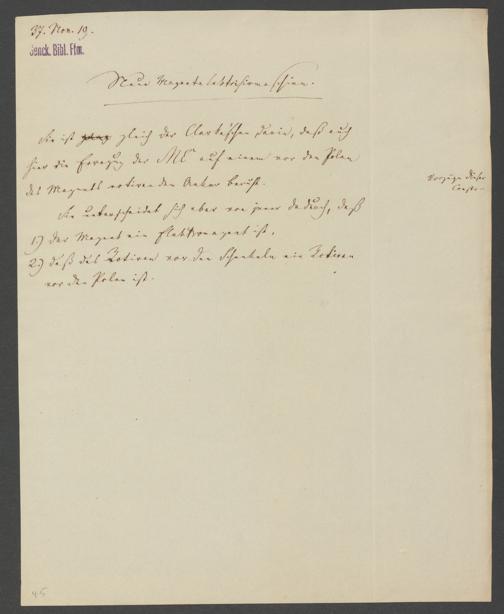 37. Nov. 19.
Senck. Bibl. Ffm.
Neue Magnetelektrisiermaschine.
Sie ist gleich der Clarke'schen darin, daß auch
hier die Erregung der ME auf einem vor den Polen
des Magnets rotirenden Anker beruht.
Sie unterscheidet sich aber von jener dadurch, daß
1) der Magnet ein Elektromagnet ist,
2) daß das Rotiren vor den Schenkeln ein Rotiren
vor den Polen ist.
Vorzüge dieser
Constr.
45